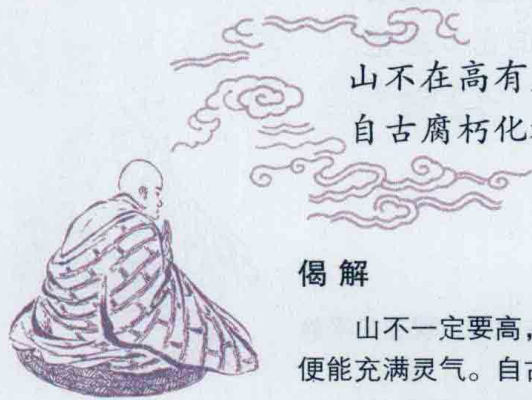 山不在高有
自古腐朽化
偈解
山不一定要高，
便能充满灵气。自古